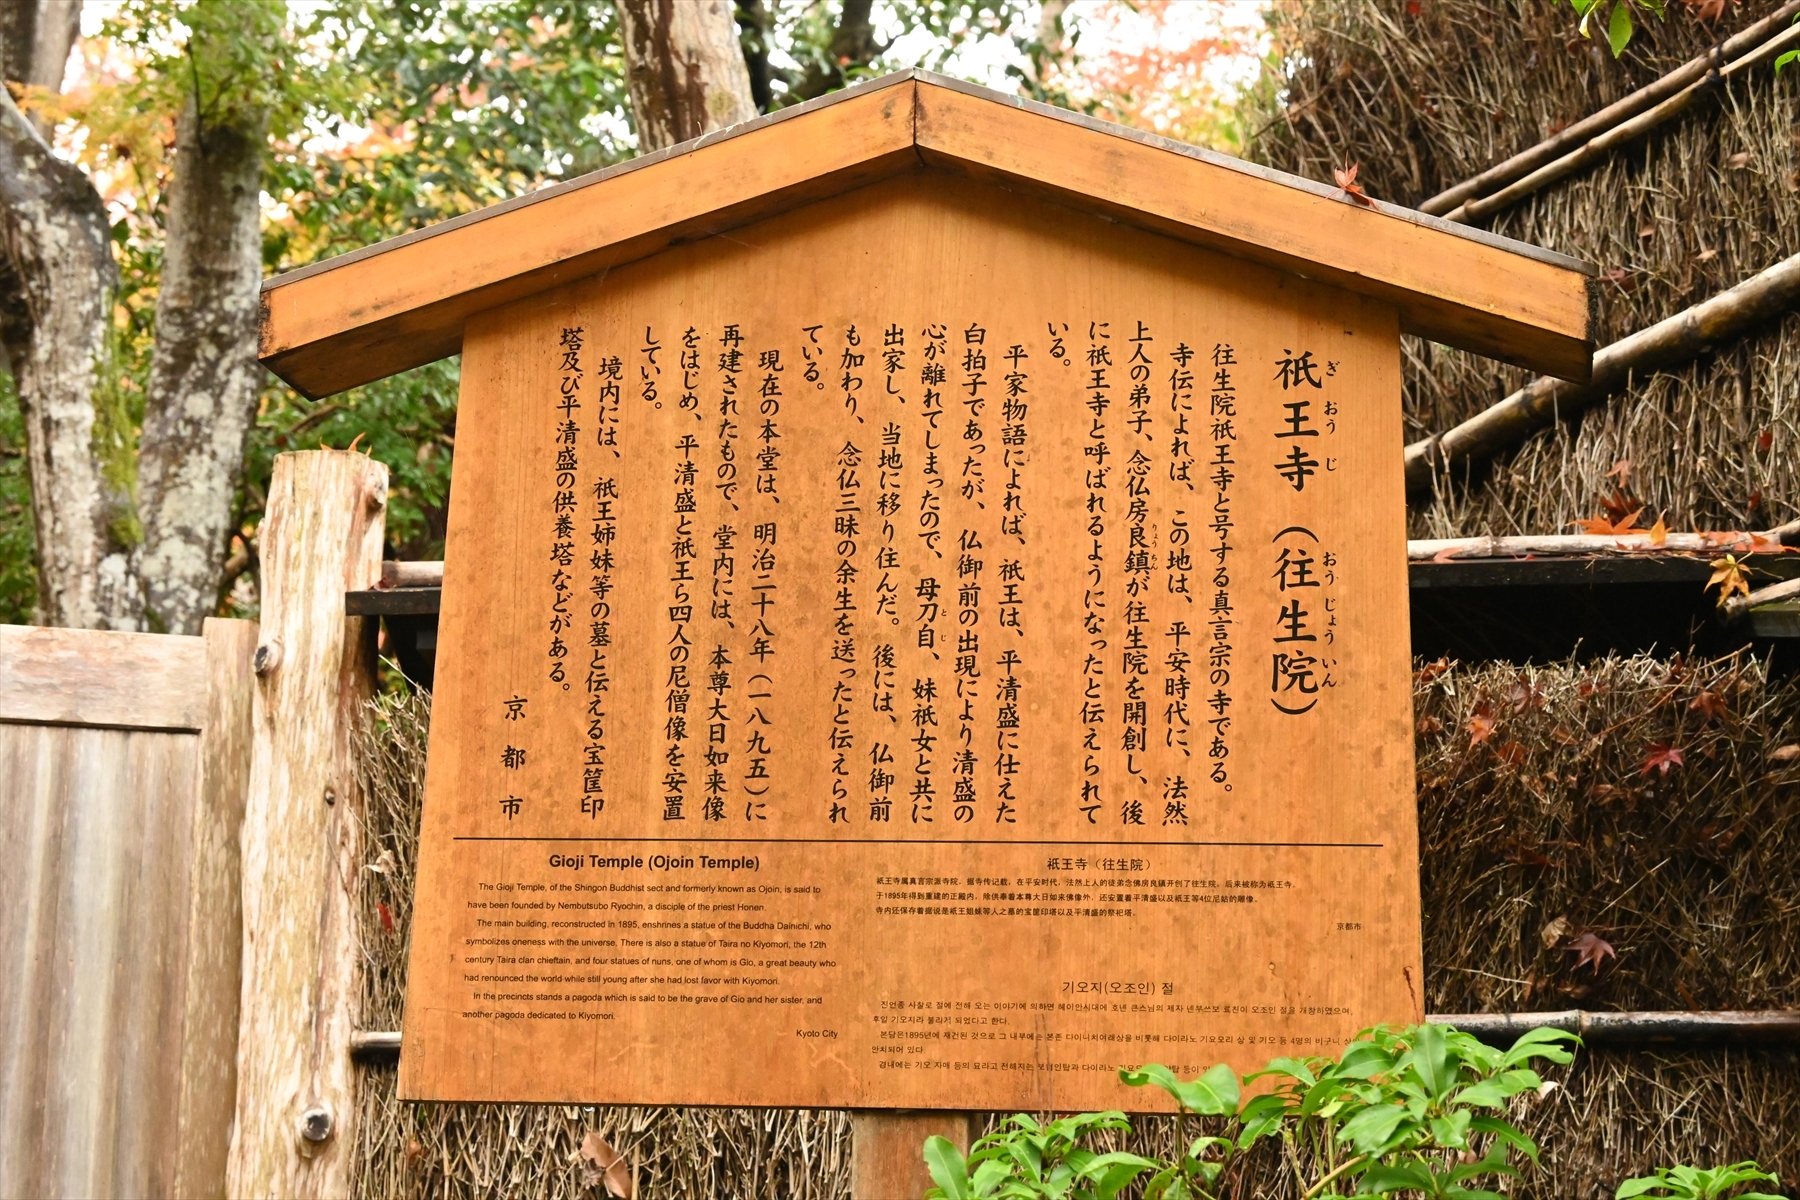 祇王寺（往生院）
ぎおうじ　おうじょういん
往生院祇王寺と号する真言宗の寺である。
寺伝によれば、この地は、平安時代に、法然
上人の弟子、念仏房良鎮が往生院を開創し、後
りょうちん
に祇王寺と呼ばれるようになったと伝えられて
いる。
平家物語によれば、祇王は、平清盛に仕えた
白拍子であったが、仏御前の出現により清盛の
心が離れてしまったので、母刀自、妹祇女と共に
とじ
出家し、当地に移り住んだ。後には、仏御前
も加わり、念仏三昧の余生を送ったと伝えられ
ている。
現在の本堂は、明治二十八年（一八九五）に
再建されたもので、堂内には、本尊大日如来像
をはじめ、平清盛と祇王ら四人の尼僧像を安置
している。
境内には、祇王姉妹等の墓と伝える宝筐印
塔及び平清盛の供養塔などがある。
京都市
Gioji Temple (Ojoin Temple)
The Gioji Temple, of the Shingon Buddhist sect and formerly known as Ojoin, is said to
have been founded by Nembutsubo Ryochin, a disciple of the priest Honen.
The main building, reconstructed in 1895, enshrines a statue of the Buddha Dainichi, who
symbolizes oneness with the universe. There is also a statue of Taira no Kiyomori, the 12th
century Taira clan chieftain, and four statues of nuns, one of whom is Gio, a great beauty who
had renounced the world while still young after she had lost favor with Kiyomori.
In the precincts stands a pagoda which is said to be the grave of Gio and her sister, and
another pagoda dedicated to Kiyomori.
Kyoto City
祇王寺（往生院）
祇王寺属真言宗派寺院。据寺传记载，在平安时代，法然上人的徒弟念佛房良镇开创了往生院，后来被称为祇王寺。
于1895年得到重建的正殿内，除供奉着本尊大日如来佛像外，还安置着平清盛以及祇王等4位尼姑的雕像。
寺内还保存着据说是祇王姐妹等人之墓的宝筐印塔以及平清盛的祭祀塔。
京都市
기오지(오조인) 절
진언종 사찰로 절에 전해 오는 이야기에 의하면 헤이안시대에 호넨 큰스님의 제자 넨부쓰보 료친이 오조인 절을 개창하였으며,
후일 기오지라 불리게 되었다고 한다.
본당은1895년에 재건된 것으로 그 내부에는 본존 다이니치여래상을 비롯해 다이라노 기요모리 상 및 기오 등 4명의 비구니
안치되어 있다.
경내에는 기오 자매 등의 묘라고 전해지는 보협인탑과 다이라노